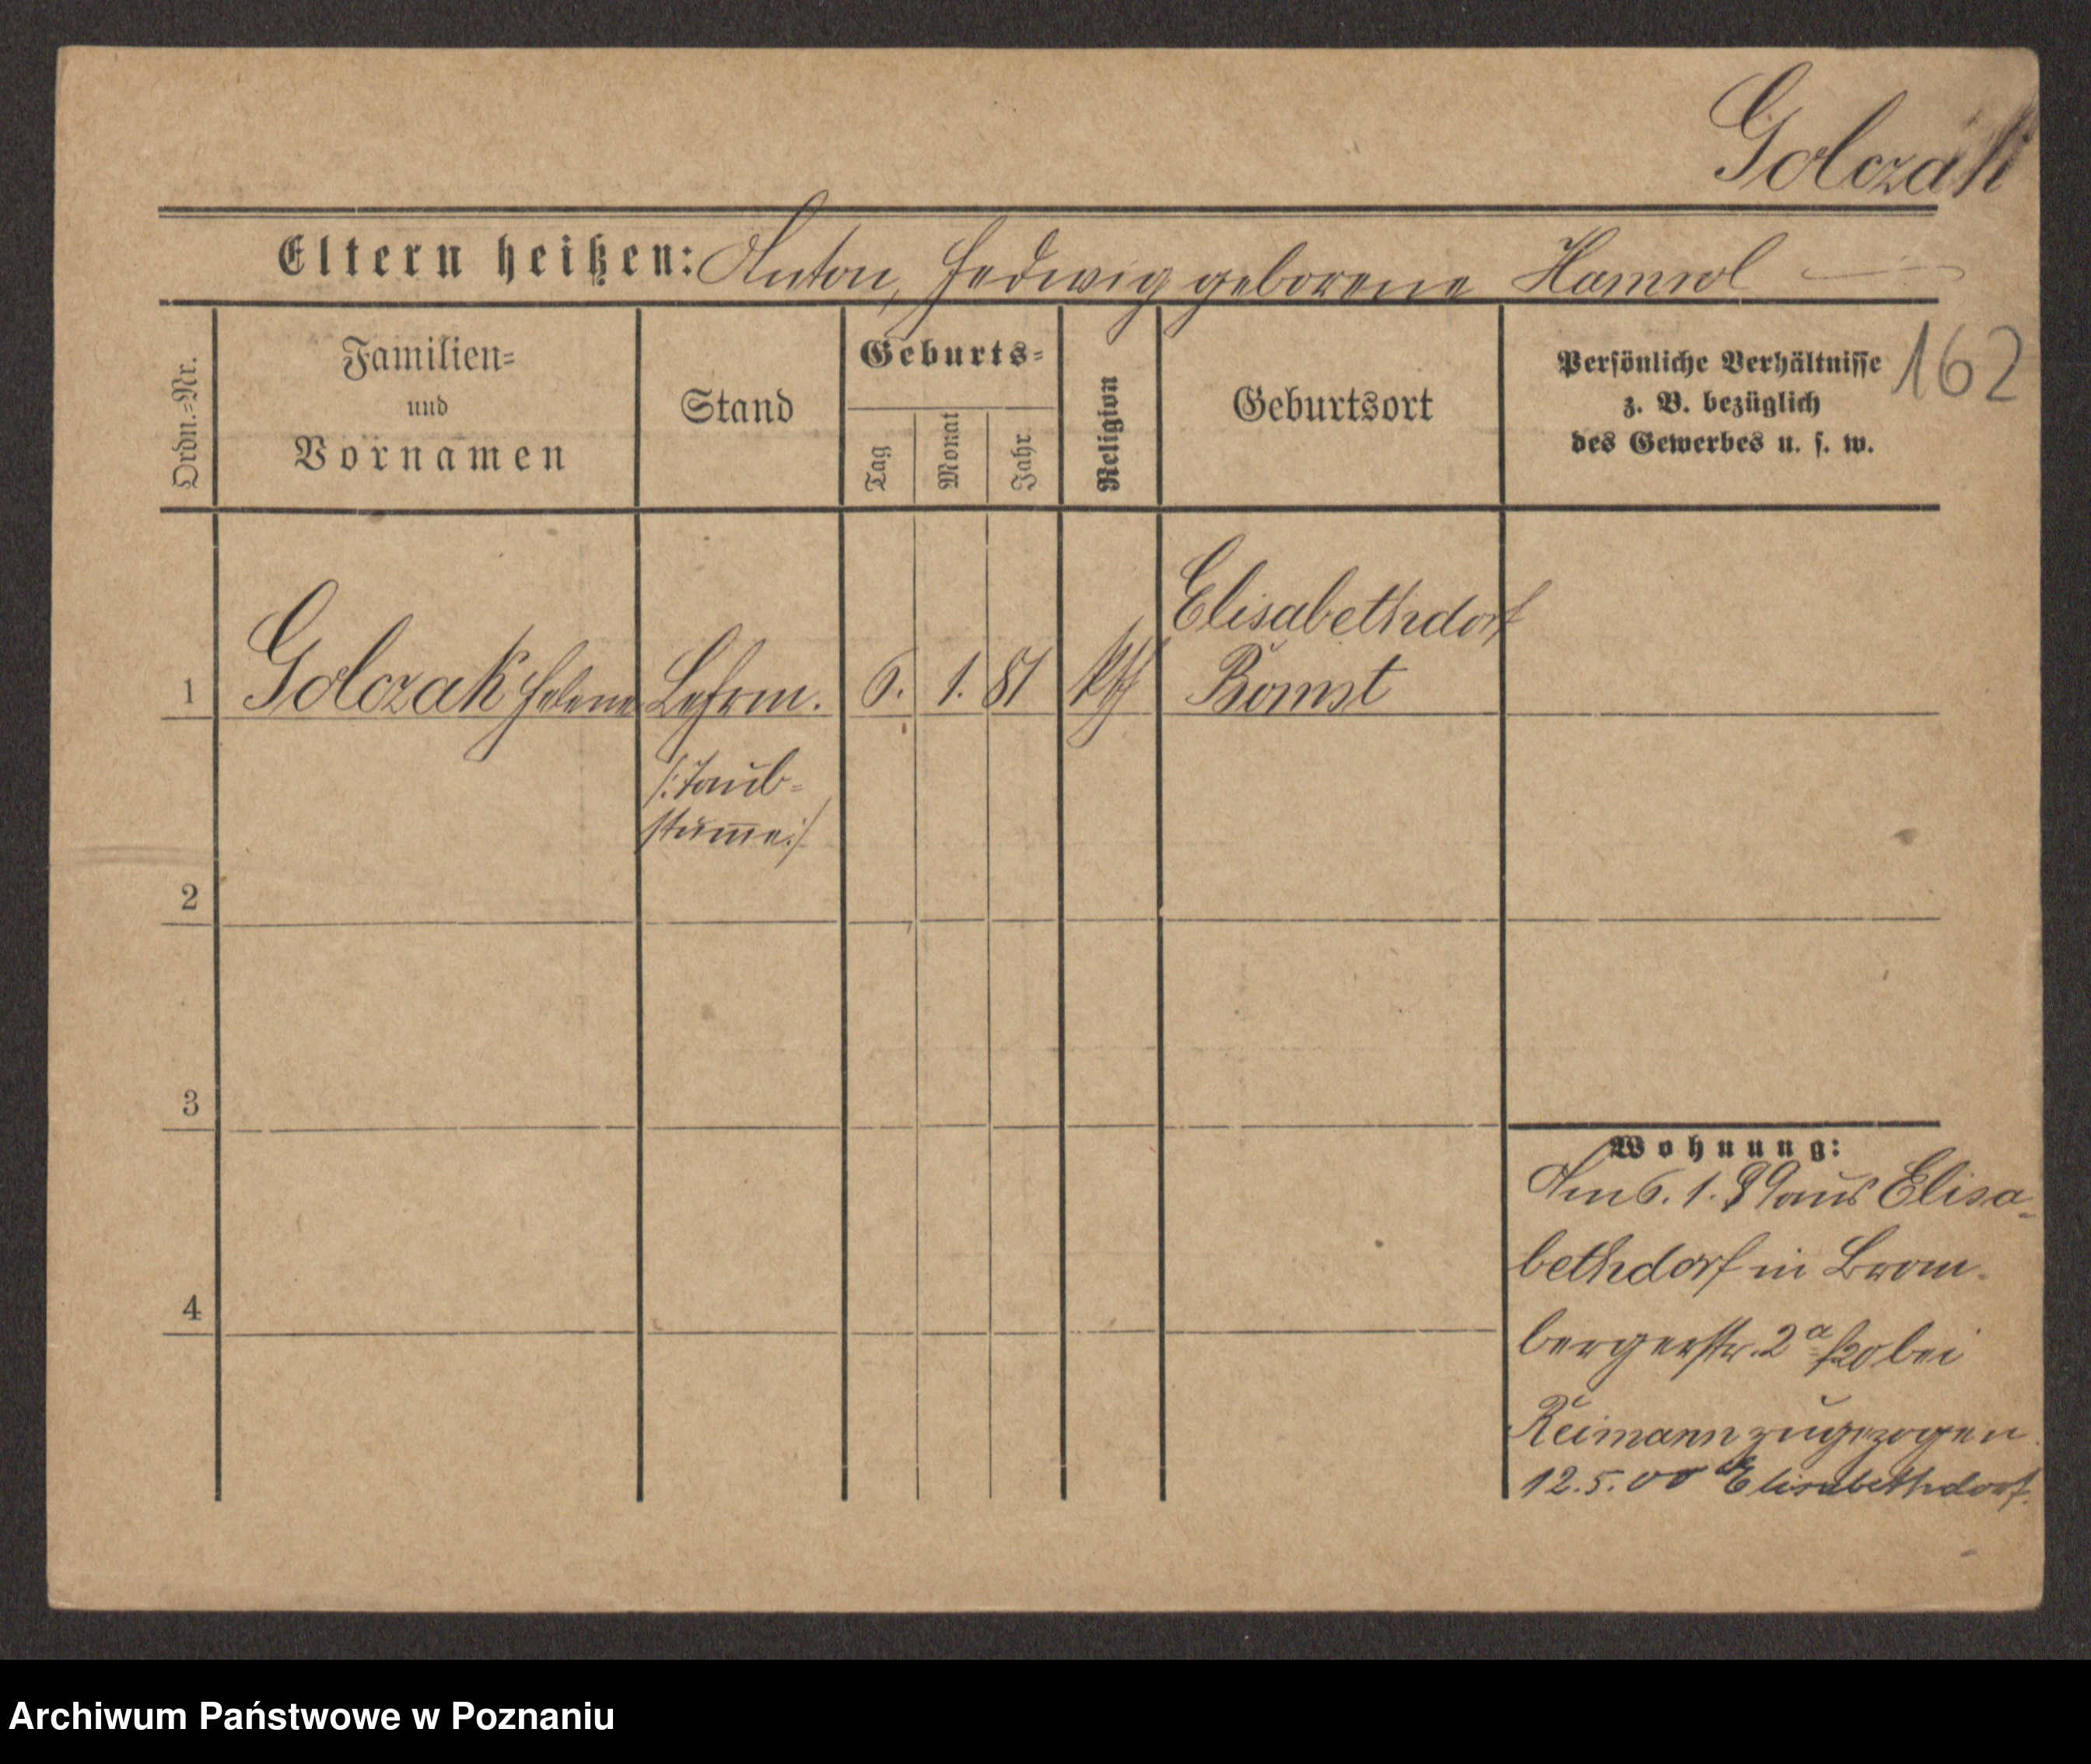 Golczak
Eltern heißen: Anton, Hedwig geborene Hamrol
162
Ordn.=Nr.
Familien=
und
Vornamen
Stand
Geburts=
Tag
Monat
Jahr
Religion
Geburtsort
Persönliche Verhältnisse
z. B. bezüglich
des Gewerbes u. s. w.
Elisabethdorf
1 Golczak Helene Lehrm. 6. 1. 81 kth Bomst
/:taub=
stum̄e:/
2
3
4
Wohnung:
Am 6. 1. 99 aus Elisa-
bethdorf in Brom-
bergerstr. 2a bei
Reimann zugezogen.
12.5.00 Elisabethdorf.
Archiwum Państwowe w Poznaniu